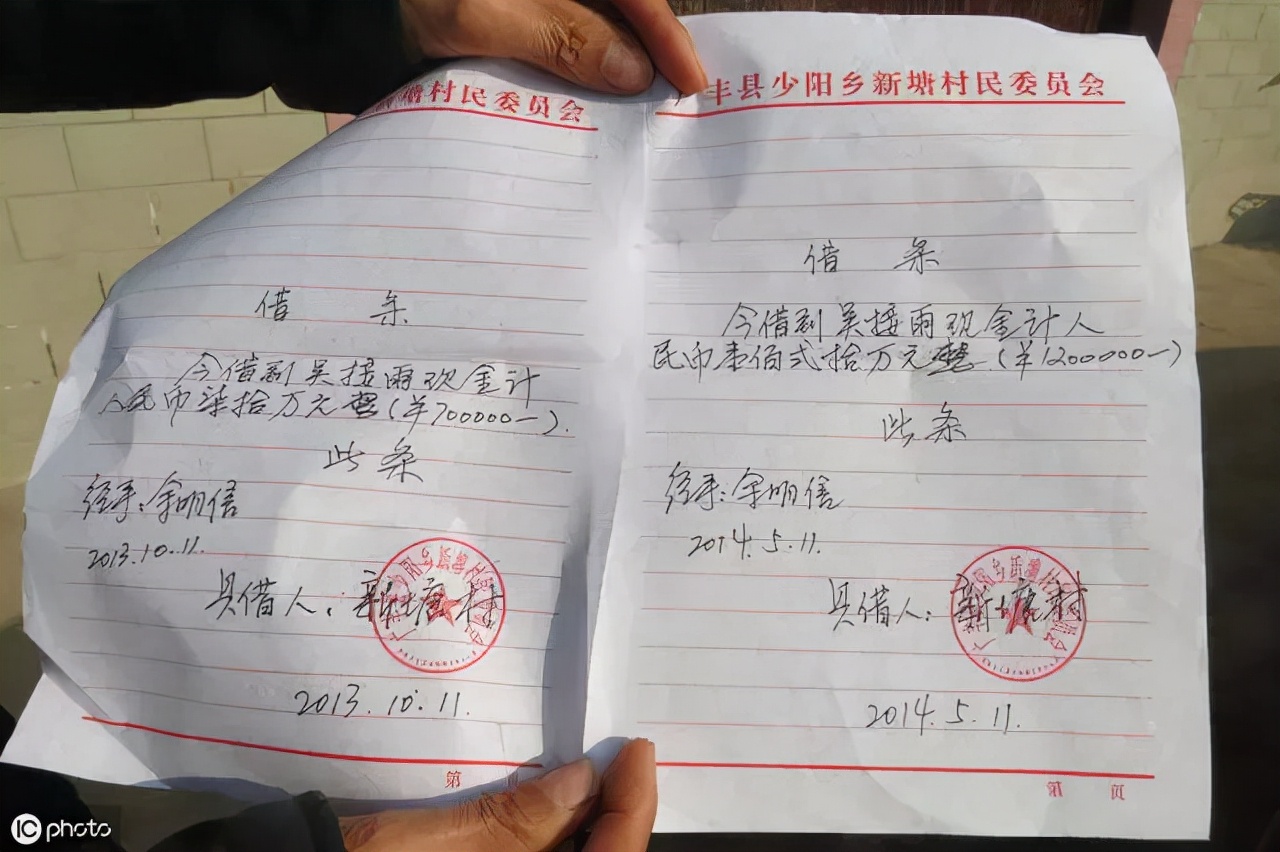 塘村民委员会
借条
今借到吴接雨现金计
人民币柒拾万元整(¥700000—).
此条
经手:余明信
2013.10.11.
具借人:新塘村
2013.10.11.
第 页
丰县少阳乡新塘村民委员会
借条
今借到吴接雨现金计人
民币壹佰弍拾万元整(¥1200000—)
此条
经手:余明信
2014.5.11.
具借人:新塘村
2014.5.11.
第 页
IC photo